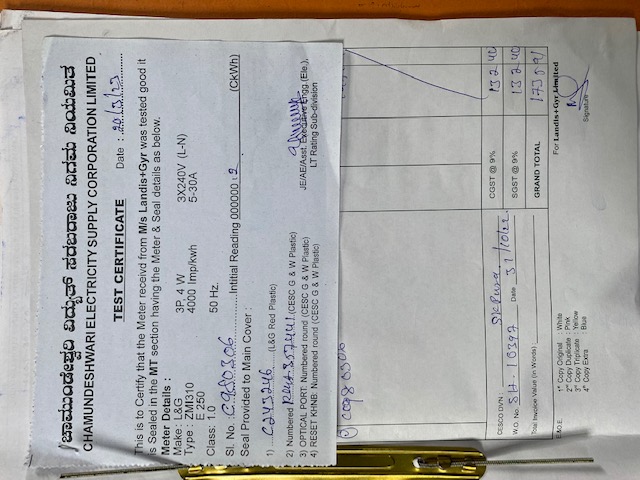 ಚಾಮುಂಡೇಶ್ವರಿ ವಿದ್ಯುತ್ ಸರಬರಾಜು ನಿಗಮ ನಿಯಮಿತ
CHAMUNDESHWARI ELECTRICITY SUPPLY CORPORATION LIMITED
TEST CERTIFICATE
Date :
This is to Certify that the Meter receivd from M/s Landis+Gyr was tested good it
is Sealed in the MT section having the Meter & Seal details as below.
Meter Details :
Make : L&G 3P, 4 W 3X240V (L-N)
Type : ZMI310 4000 Imp/kwh 5-30A
E 250
Class: 1.0 50 Hz.
Sl. No. : C980306 Intitial Reading 000000.2 (CkWh)
Seal Provided to Main Cover :
1) C243246 (L&G Red Plastic)
2) Numbered (CESC G & W Plastic)
3) OPTICAL PORT: Numbered round (CESC G & W Plastic)
4) RESET KHNB: Numbered round (CESC G & W Plastic)
JE/AE/Asst. Executive Engg (Ele.),
LT Rating Sub-division
CESCO DVN :
W.O. No. SH-10397 Date 31/10/22
Total Invoice Value (in Words)
CGST @ 9% 13240
SGST @ 9% 13240
GRAND TOTAL 173591
E.&O.E.
1st Copy Original : White
2nd Copy Duplicate : Pink
3rd Copy Triplicate : Yellow
4th Copy Extra : Blue
For Landis+Gyr Limited
Signature